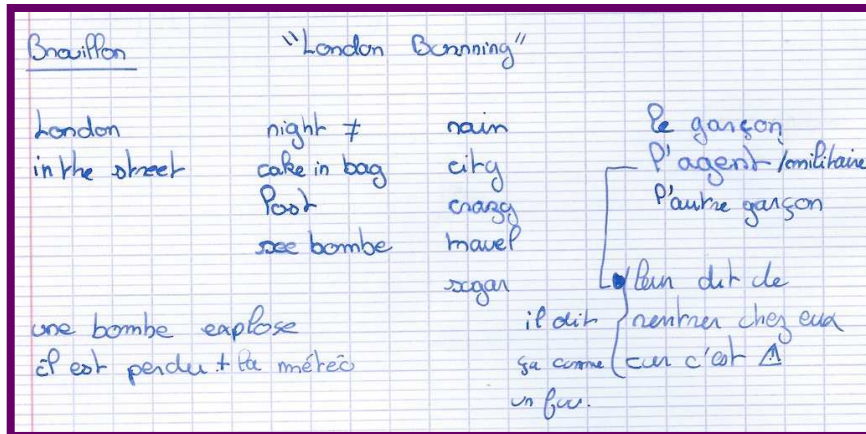 Brouillon
"London Burnning"
London
in the street
night ≠
cake in bag
lost
see bombe
rain
city
crazy
travel
sugar
le garçon
l'agent/militaire
l'autre garçon
leur dit de
rentrer chez eux
car c'est ⚠
il dit
ça comme
un fou.
une bombe explose
il est perdu + la météo